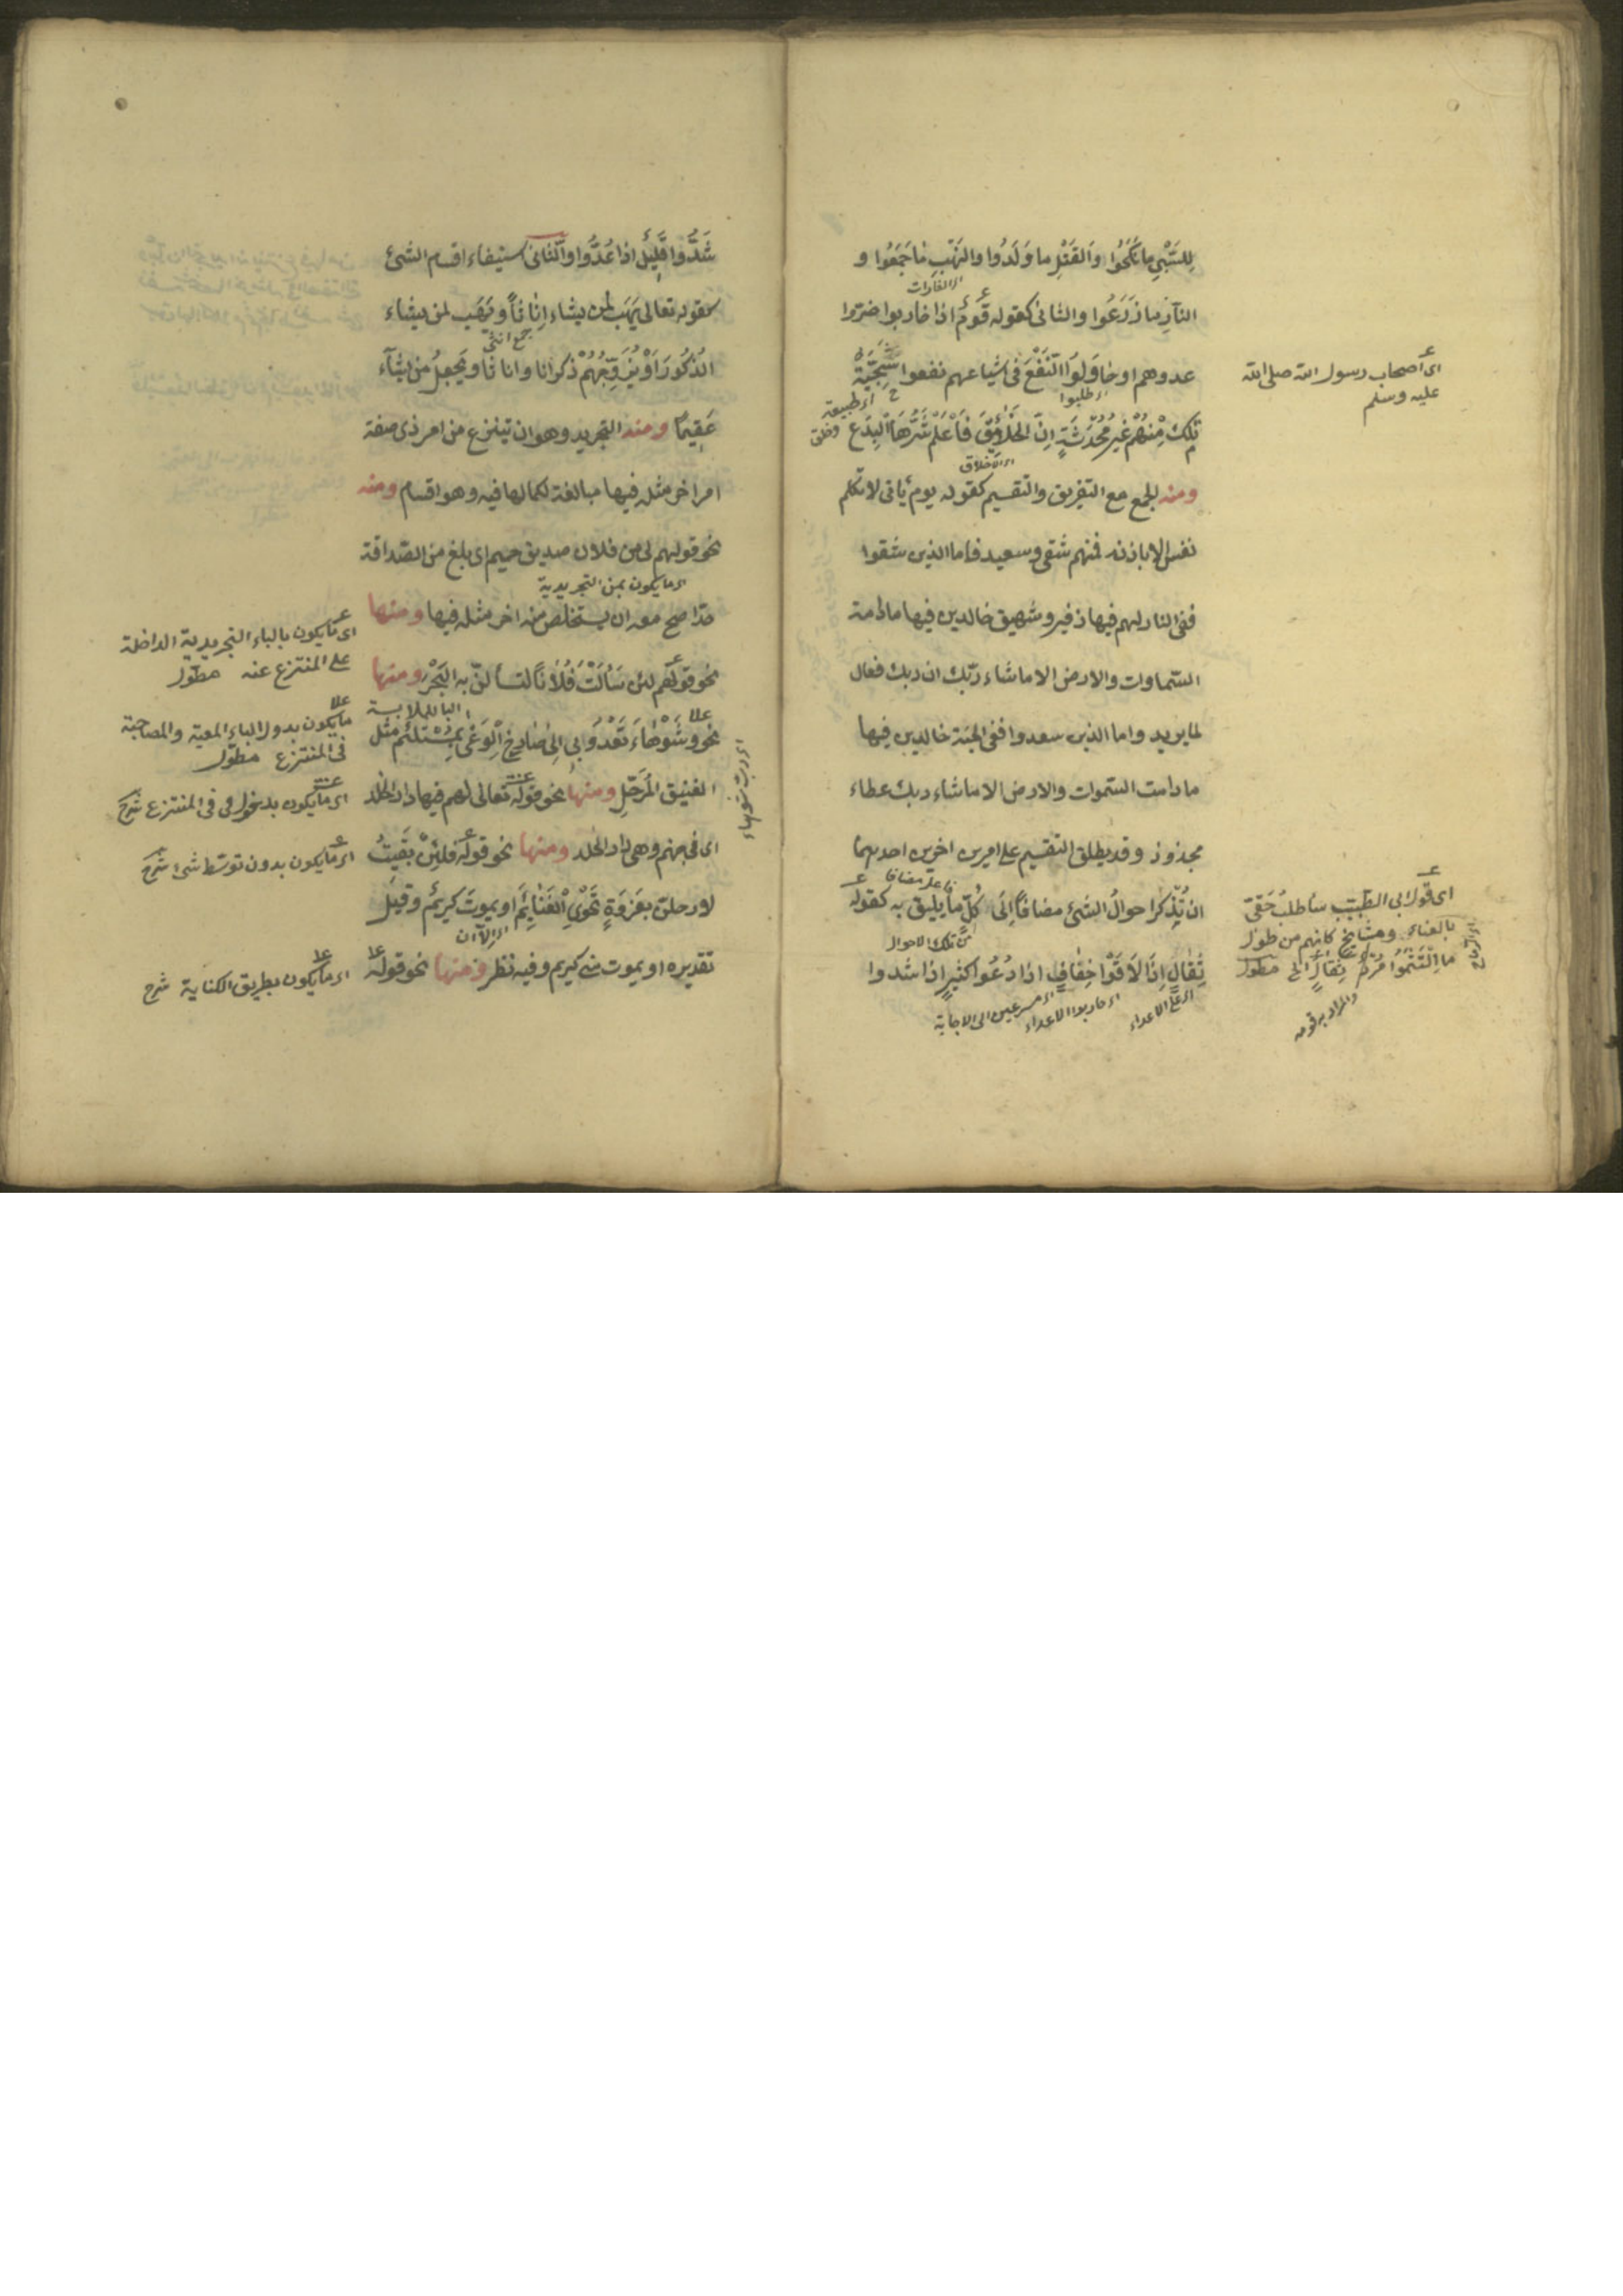 لِلسَّبْيِ مَا نَكَحُوا وَالْقَتْلِ مَا وَلَدُوا وَالنَّهْبِ مَا جَمَعُوا و
اى الغارات
النَّارِ مَا زَرَعُوا والثانى كقوله قَوْمٌ اذا حاربوا ضرّوا
عدوهم او حَاوَلُوا النَّفْعَ فى اشياعهم نفعوا سَجِيَّةٌ
اى طلبوا
اى طبيعة وخلق
تِلْكَ مِنْهُمْ غَيْرُ مُحْدَثَةٍ اِنَّ الْخَلَائِقَ فَاعْلَمْ شَرُّهَا الْبِدَعُ
اى الاخلاق
ومنه الجمع مع التفريق والتقسيم كقوله يوم يأتى لا تكلم
نفس الا باذنه فمنهم شقى وسعيد فاما الذين شقوا
ففى النار لهم فيها زفير وشهيق خالدين فيها مادامت
السّماوات والارض الا ماشاء ربّك ان ربك فعال
لما يريد واما الذين سعدوا ففى الجنة خالدين فيها
مادامت السّموات والارض الا ماشاء ربك عطاء
مجذوذ وقد يطلق التقسيم على امرين اخرين احدهما
ان يُذكر احوالُ الشئ مضافاً اِلَى كُلٍّ ما يليق به كقوله
من تلك الاحوال
ثِقَالٍ اِذَا لَاقَوْا خِفَافٍ اذا دُعُوا كثيرٍ اذا شدوا
اى على الاعداء
اى حاربوا الاعداء
اى مسرعين الى الاجابة
اى اصحاب رسول الله صلى الله
عليه وسلم
اى قول ابى الطّيّب سأطلبُ حَقّى
بالقناء ومشايخ كانهم من طول
ما الْتَثَمُوا مُرْدٌ ثِقَالٍ الخ مطول
والمراد به قومه
شَدُّوا قَلِيلٌ اذا عُدُّوا والثانى استيفاء اقسام الشئ
كقوله تعالى يَهَب لمن يشاء اِنَاثاً ويَهَب لمن يشاء
جمع انثى
الذُّكُورَ اَوْ يُزَوِّجُهُمْ ذكرانا واناثا ويَجعلُ من يشآء
عَقِيمًا ومنه التجريد وهو ان ينتزع من امر ذى صفة
امر اخر مثله فيها مبالغة لكمالها فيه وهو اقسام ومنه
نحو قولهم لى من فلان صديق حميم اى بلغ من الصّداقة
اى ما يكون بمن التجريدية
حدّا صح معه ان يستخلص منه اخر مثله فيها ومنها
نحو قولهم لئن سَأَلْتَ فُلَاناً لتسألنّ به الْبَحْرَ ومنها
الباء للملابسة
نحو وشَوْهَاءَ تَعْدُو بى اِلى صَارِخِ الْوَغَى بِمُسْتَلْئِمٍ مثل
الفنيق المُرَحَّلِ ومنها نحو قوله تعالى لهم فيها دار الخلد
اى فى جهنم وهى دار الخلد ومنها نحو قوله فلئِنْ بَقِيتُ
لارحلنّ بغزوةٍ تَحْوِى الْغَنَايِمَ او يموتَ كريمٌ وقيل
اى الا ان
تقديره او يموت منى كريم وفيه نظر ومنها نحو قوله
اى ما يكون بالباء التجريدية الداخلة
على المنتزع عنه مطوّل
ما يكون بدخول الباء المعية والمصاحبة
فى المنتزع مطوّل
اى ما يكون بدخول فى فى المنتزع شرح
اى ما يكون بدون توسّط شئ شرح
اى ما يكون بطريق الكناية شرح